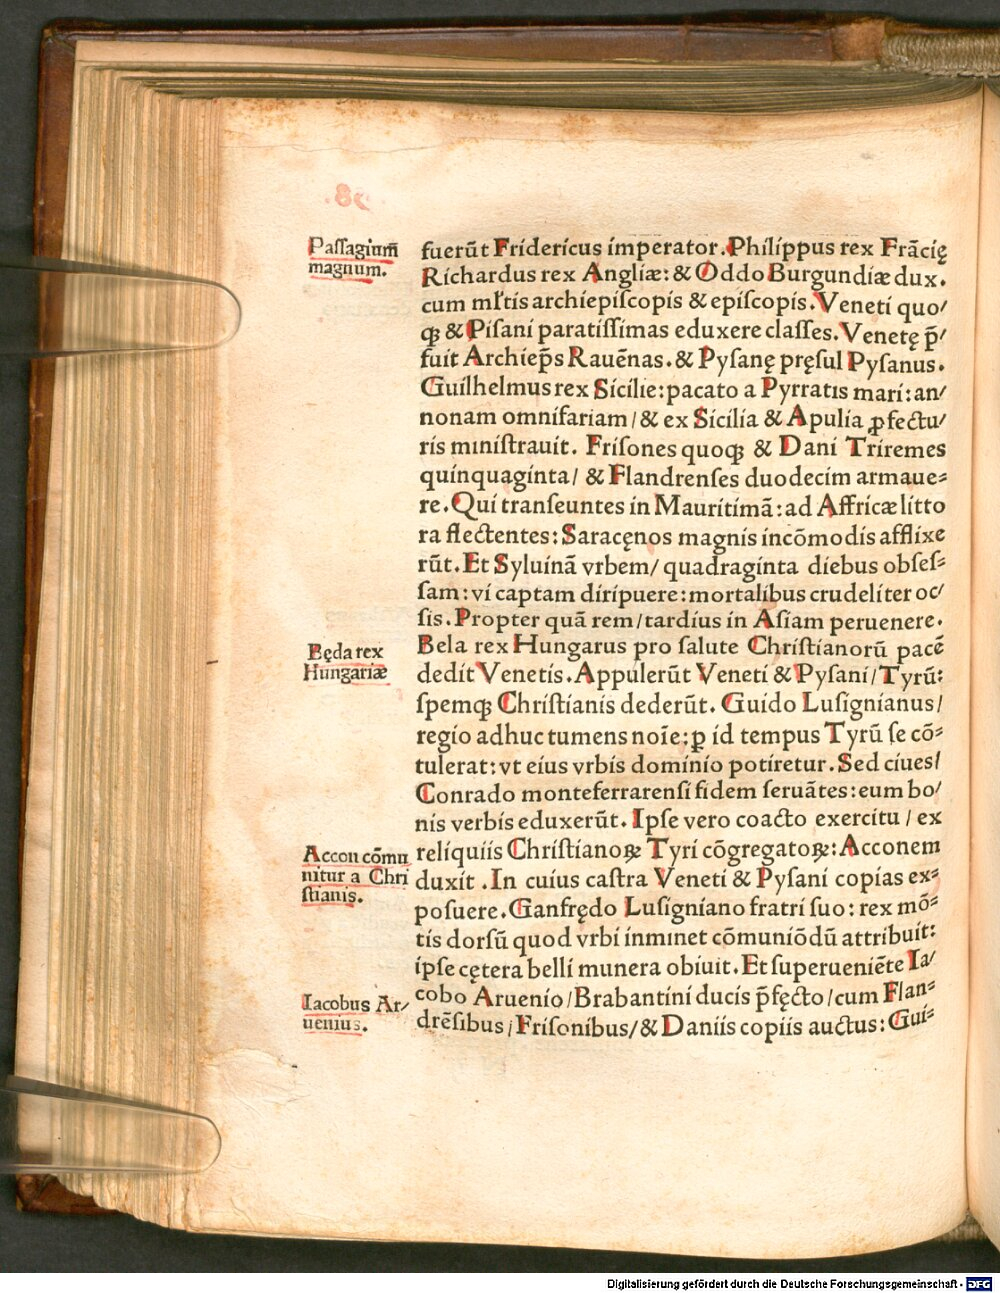 Paſſagium̄
magnum.
fuerūt Fridericus imperator. Philippus rex Frācię
Richardus rex Angliæ: & Oddo Burgundiæ dux.
cum ml̄tis archiepiſcopis & epiſcopis. Veneti quo/
qꝫ & Piſani paratiſſimas eduxere claſſes. Venetę p̄/
fuit Archiep̄s Rauēnas. & Pyſanę pręſul Pyſanus.
Guilhelmus rex Sicilie: pacato a Pyrratis mari: an/
nonam omnifariam/ & ex Sicilia & Apulia ꝑfectu/
ris miniſtrauit. Friſones quoqꝫ & Dani Triremes
quinquaginta/ & Flandrenſes duodecim armaue⸗
re. Qui tranſeuntes in Mauritimā: ad Affricæ litto
ra flectentes: Saracęnos magnis incōmodis afflixe
rūt. Et Syluinā vrbem/ quadraginta diebus obſeſ⸗
ſam: vi captam diripuere: mortalibus crudeliter oc/
ſis. Propter quā rem/ tardius in Aſiam peruenere.
Będa rex
Hungariæ
Bela rex Hungarus pro ſalute Chriſtianorū pacē
dedit Venetis. Appulerūt Veneti & Pyſani/ Tyrū:
ſpemqꝫ Chriſtianis dederūt. Guido Luſignianus/
regio adhuc tumens noīe: ꝑ id tempus Tyrū ſe cō⸗
tulerat: vt eius vrbis dominio potiretur. Sed ciues/
Conrado monteferrarenſi fidem ſeruātes: eum bo/
nis verbis eduxerūt. Ipſe vero coacto exercitu / ex
Accon cōmu
nitur a Chri
ſtianis.
reliquiis Chriſtianoꝝ Tyri cōgregatoꝝ: Acconem
duxit . In cuius caſtra Veneti & Pyſani copias ex⸗
poſuere. Ganfrędo Luſigniano fratri ſuo: rex mō⸗
tis dorſū quod vrbi inminet cōmuniōdū attribuit:
ipſe cętera belli munera obiuit. Et ſuperueniēte Ia/
Iacobus Ar/
uenius.
cobo Aruenio/ Brabantini ducis p̄fęcto/ cum Flan⸗
drēſibus/ Friſonibus/ & Daniis copiis auctus: Gui⸗
Digitalisierung gefördert durch die Deutsche Forschungsgemeinschaft - DFG